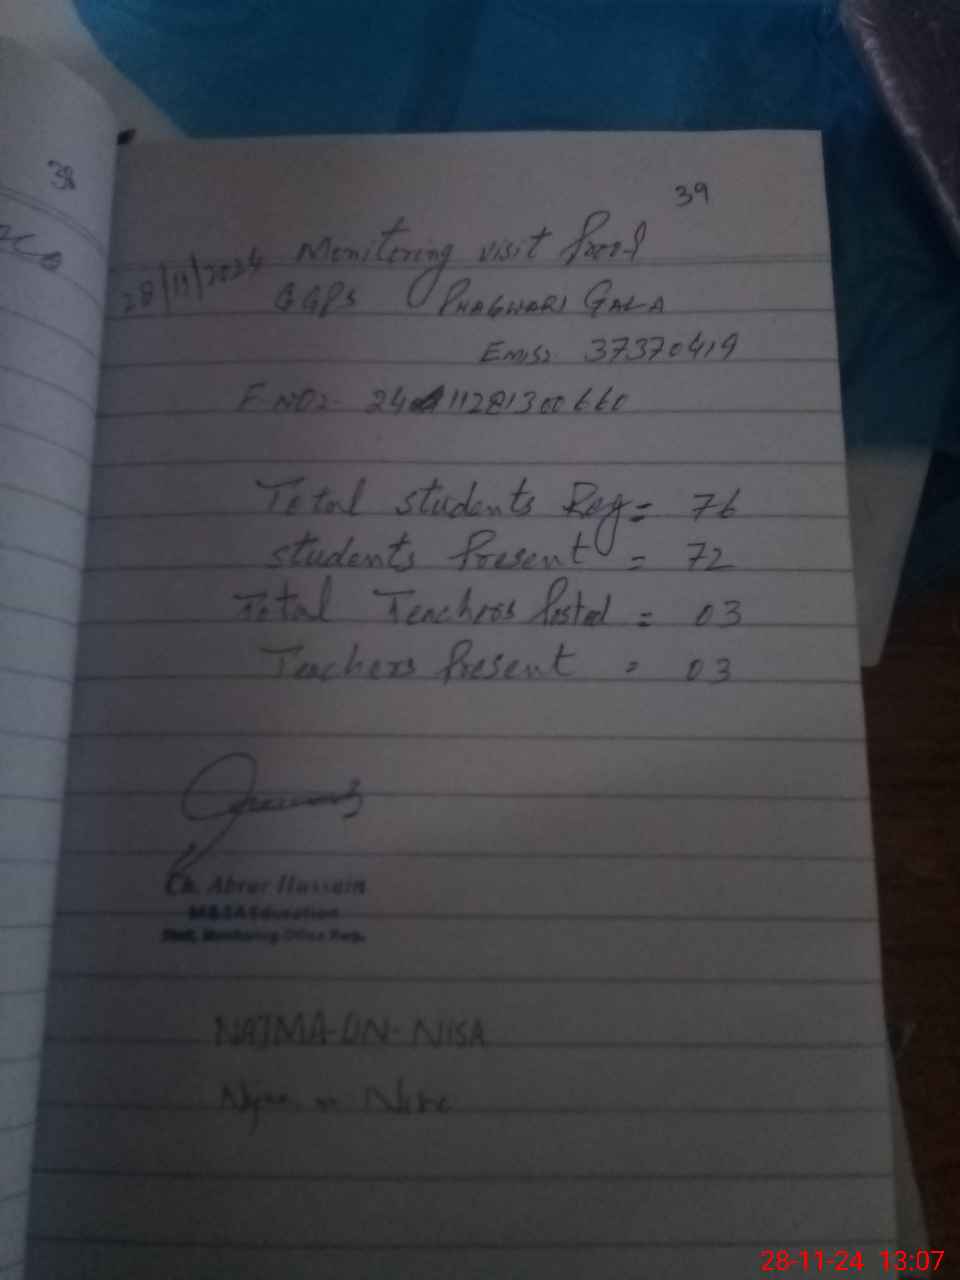 38
39
28/11/2024 Monitoring visit Proof
GGPS PHAGWARI GALA
Emis: 37370419
F-NO:- 2411281300660
Total students Reg = 76
students Present = 72
Total Teachers Posted = 03
Teachers Present = 03
Ch. Abrar Hussain
M&EA Education
Monitoring Office
NAJMA-UN-NISA
28-11-24 13:07